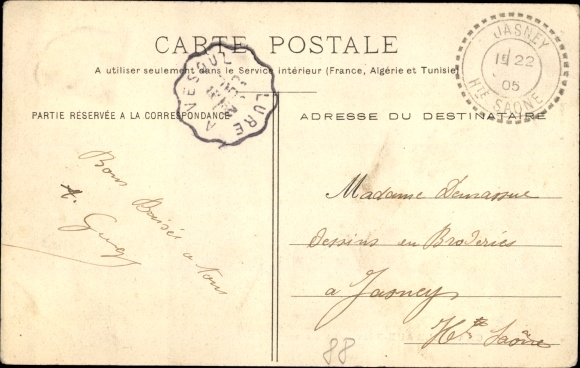 CARTE POSTALE
A utiliser seulement dans le Service intérieur (France, Algérie et Tunisie)
PARTIE RÉSERVÉE A LA CORRESPONDANCE
ADRESSE DU DESTINATAIRE
LURE A VESOUL
JASNEY
22
05
Hte SAÔNE
Bons Baisers a tous
Madame Demassue
Dessins en Broderies
a Jasney
Hte Saône
88